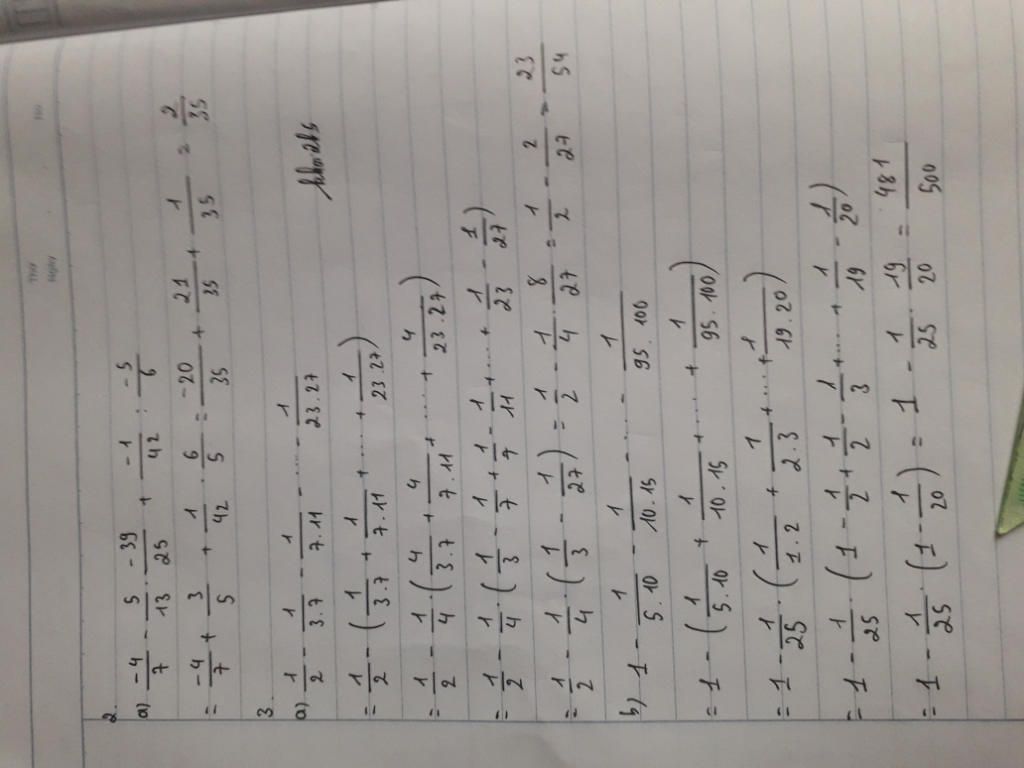 Thứ
Ngày
No
2.
a) -4/7 - 5/13 . -39/25 + -1/42 : -5/6
= -4/7 + 3/5 + 1/42 . 6/5 = -20/35 + 21/35 + 1/35 = 2/35
3.
a) 1/2 - 1/3.7 - 1/7.11 - ..... - 1/23.27
= 1/2 - (1/3.7 + 1/7.11 + .... + 1/23.27)
= 1/2 - 1/4 . (4/3.7 + 4/7.11 + ..... + 4/23.27)
= 1/2 - 1/4 . (1/3 - 1/7 + 1/7 - 1/11 + .... + 1/23 - 1/27)
= 1/2 - 1/4 . (1/3 - 1/27) = 1/2 - 1/4 . 8/27 = 1/2 - 2/27 = 23/54
b) 1 - 1/5.10 - 1/10.15 - ..... - 1/95.100
= 1 - (1/5.10 + 1/10.15 + ..... + 1/95.100)
= 1 - 1/25 . (1/1.2 + 1/2.3 + .... + 1/19.20)
= 1 - 1/25 . (1 - 1/2 + 1/2 - 1/3 + .... + 1/19 - 1/20)
= 1 - 1/25 . (1 - 1/20) = 1 - 1/25 . 19/20 = 481/500